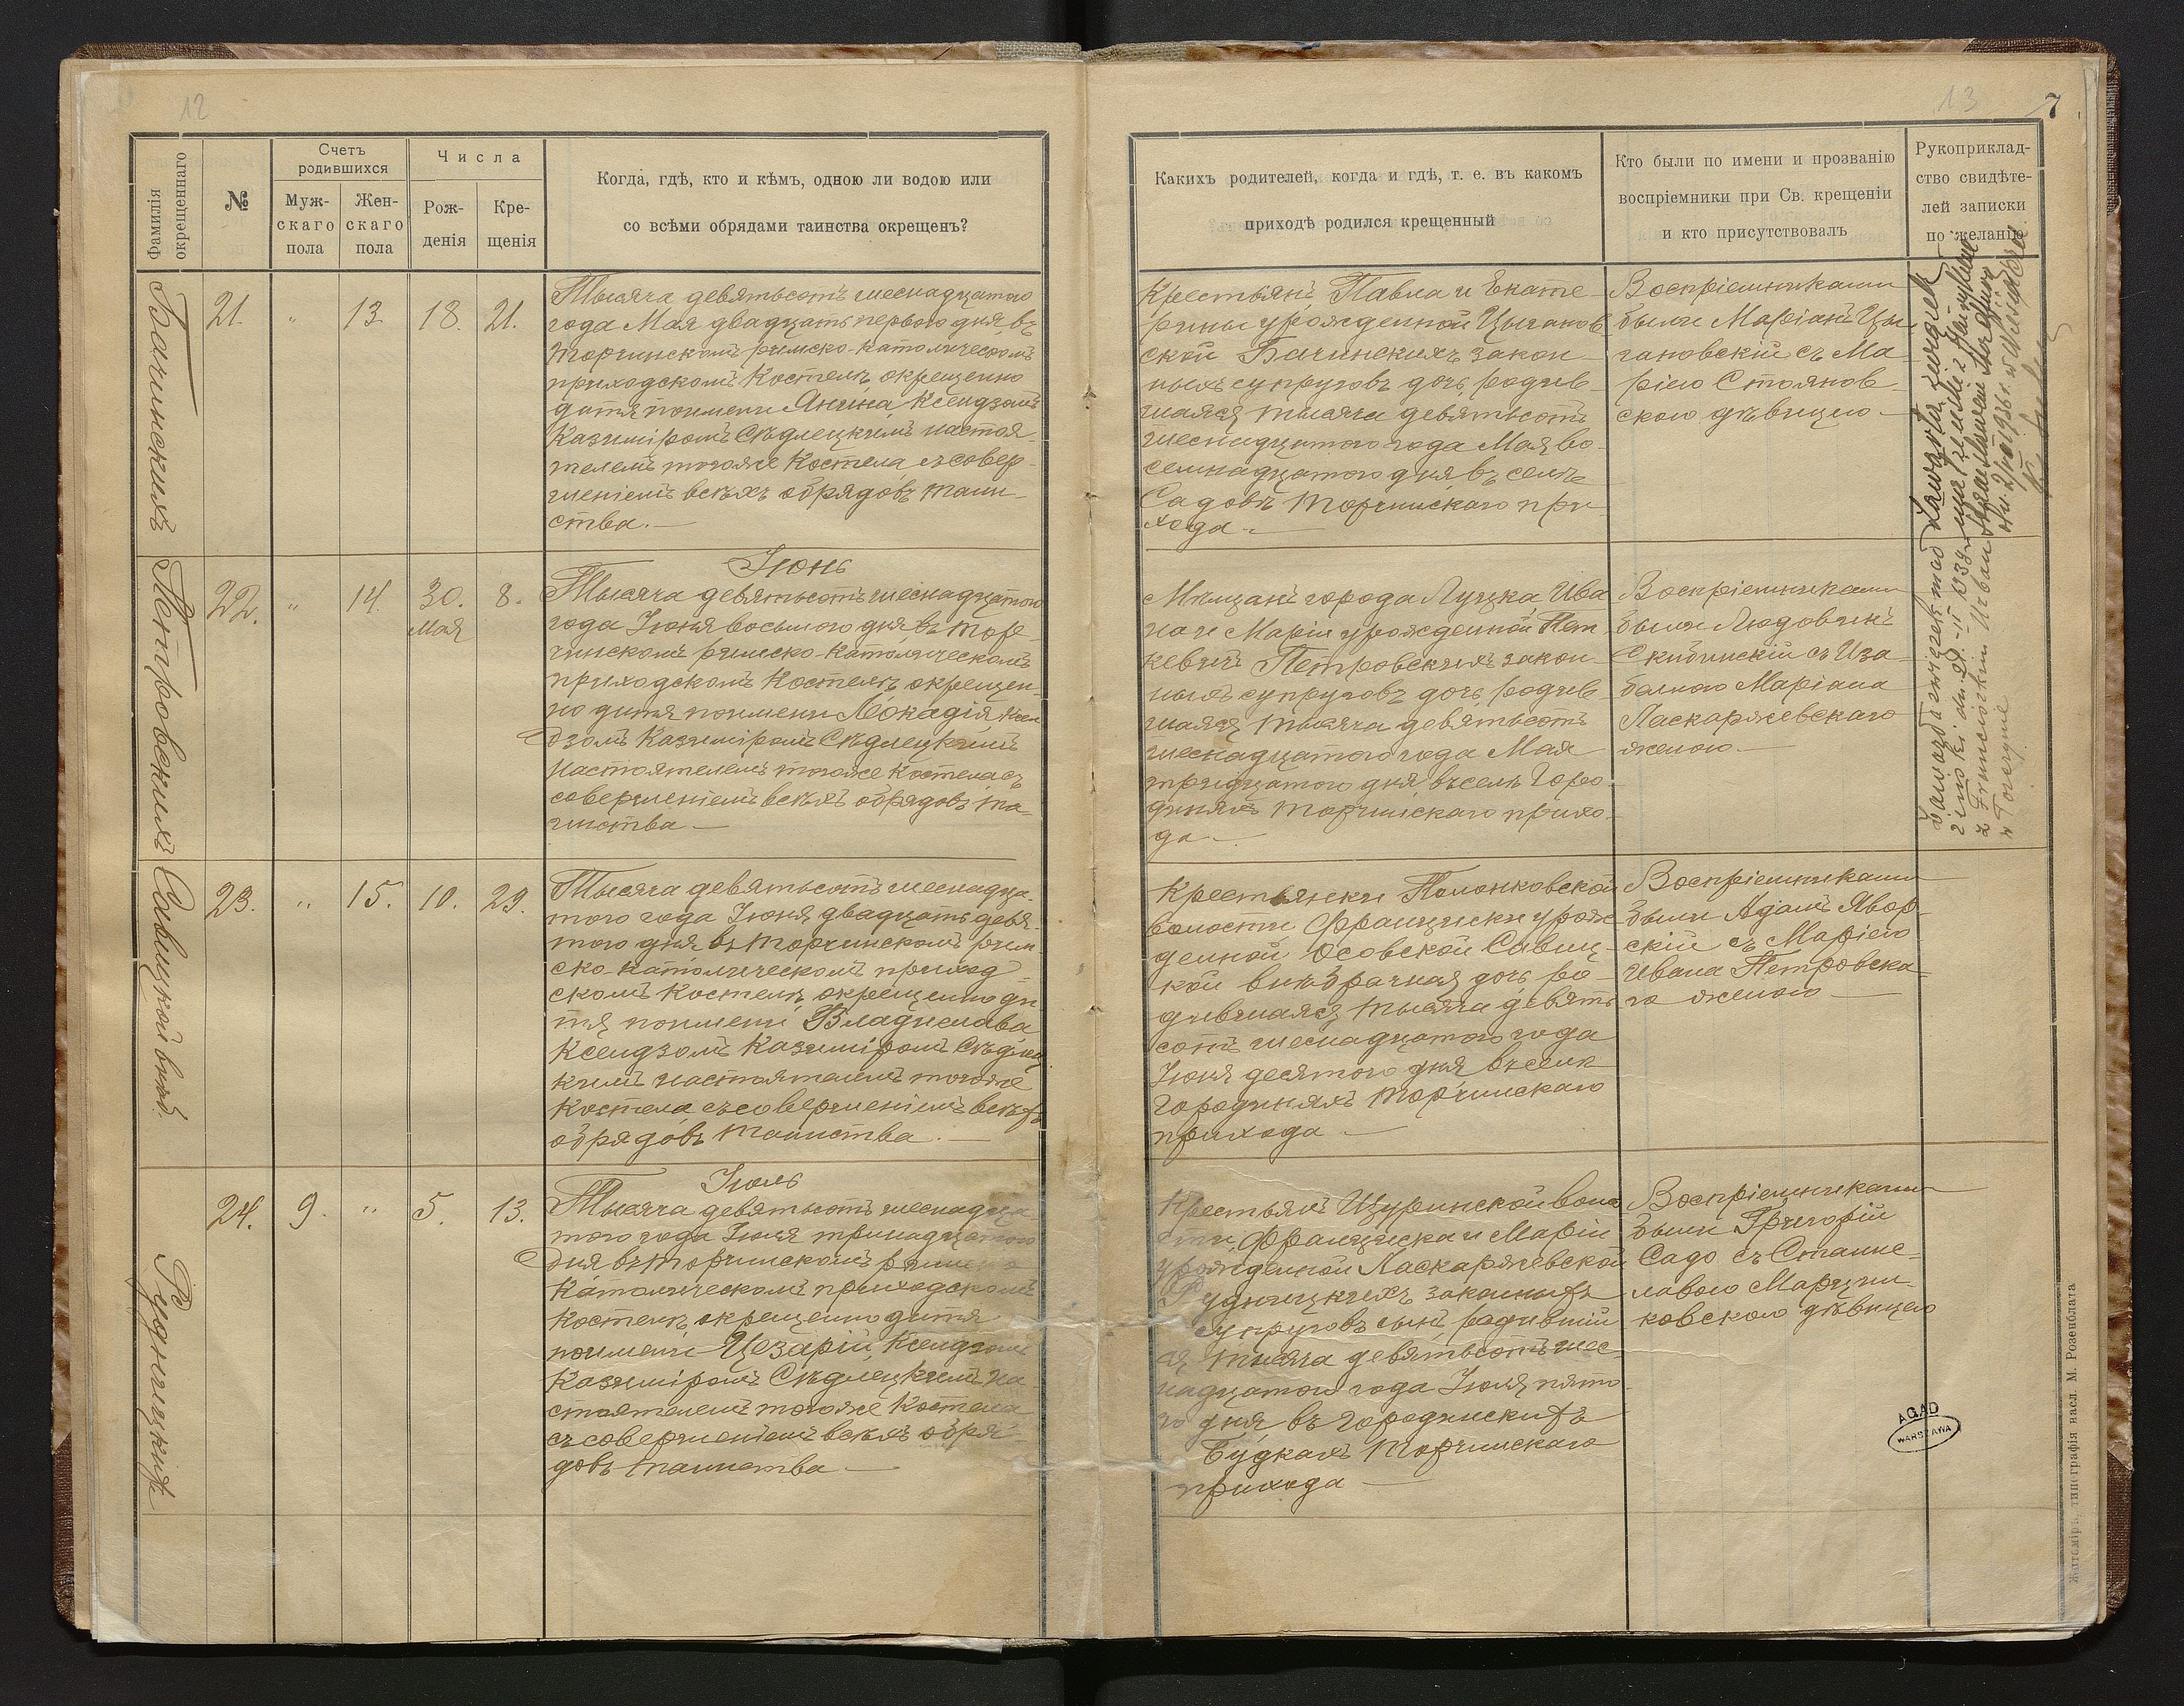 12
Фамилія
окрещеннаго
№
Счетъ
родившихся
Муж-
скаго
пола
Жен-
скаго
пола
Числа
Рож-
денія
Кре-
щенія
Когда, гдѣ, кто и кѣмъ, одною ли водою или
со всѣми обрядами таинства окрещенъ?
Бачинскихъ
21.
"
13
18.
21.
Тысяча девятьсотъ шеснадцатого
года Мая двадцать первого дня въ
Торчинскомъ римско-католическомъ
приходскомъ Костелѣ окрещенно
дитя поимени Янина, Ксендзомъ
Казиміромъ Сѣдлецкимъ настоя-
телемъ тогоже Костела съ совер-
шеніемъ всѣхъ обрядовъ таин-
ства.—
Петровскихъ
22.
"
14.
30.
Мая
8.
Іюнь
Тысяча девятьсотъ шеснадцатого
года Іюня восьмого дня въ Тор-
чинскомъ римско-католическомъ
приходскомъ Костелѣ окрещен-
но дитя поимени Леокадія Ксен
дзомъ Казиміромъ Сѣдлецкимъ
настоятелемъ тогоже Костела съ
совершеніемъ всѣхъ обрядовъ та-
инства —
Савицкой внѣб.
23.
"
15.
10.
29.
Тысяча девятьсотъ шеснадца-
того года Іюня двадцать девя-
того дня въ Торчинскомъ рим-
ско-католическомъ приход-
скомъ Костелѣ окрещенно ди
тя поимени Владислава
Ксендзомъ Казиміромъ Сѣдлец
кимъ настоятелемъ тогоже
Костела съ совершеніемъ всѣхъ
обрядовъ таинства.—
Рудницкихъ
24.
9.
"
5.
13.
Іюль
Тысяча девятьсотъ шеснадца-
того года Іюля тринадцатого
дня въ Торчинскомъ римско
католическомъ приходскомъ
Костелѣ окрещенно дитя
поимени Цезарій, Ксендзомъ
Казиміромъ Сѣдлецкимъ на-
стоятелемъ тогоже Костела
съ совершеніемъ всѣхъ обря-
довъ таинства —
13
7
Какихъ родителей, когда и гдѣ, т. е. въ какомъ
приходѣ родился крещенный
Кто были по имени и прозванію
воспріемники при Св. крещеніи
и кто присутствовалъ
Рукоприклад-
ство свидѣте-
лей записки
по желанію
Крестьянъ Павла и Екате-
рины урожденной Цыганов
ской Бачинскихъ закон-
ныхъ супруговъ дочь, родив-
шаяся тысяча девятьсотъ
шеснадцатого года Мая во-
семнадцатого дня въ селѣ
Садовѣ Торчинскаго при-
хода.—
Воспріемниками
были Маріанъ Цы
гановскій съ Ма-
ріею Стоянов-
скою дѣвицею.—
Мѣщанъ города Луцка Ива
на и Маріи урожденной Пет
кевичъ Петровскихъ закон-
ныхъ супруговъ дочь, родив
шаяся тысяча девятьсотъ
шеснадцатого года Мая
тридцатого дня, въ селѣ Горо-
дыняхъ Торчинскаго прихо-
да.—
Воспріемниками
были Людовикъ
Скибинскій съ Иза-
беллою Маріана
Ласкаржевскаго
женою.—
Крестьянки Полонковской
волости Франциски урож
денной Осовской Савиц-
кой внѣбрачная дочь ро-
дившаяся тысяча девять
сотъ шеснадцатого года
Іюня десятого дня въ селѣ
Городыняхъ Торчинскаго
прихода —
Воспріемниками
были Адамъ Явор-
скій съ Маріею
Ивана Петровска-
го женою —
Крестьянъ Щуринской воло
сти, Франциска и Маріи
урожденной Ласкаржевской
Рудницкихъ законныхъ
супруговъ сынъ родившій
ся тысяча девятьсотъ шес-
надцатого года Іюля пято-
го дня въ Городинскихъ
Будкахъ Торчинскаго
прихода —
Воспріемниками
были Григорій
Садо съ Станис-
лавою Марцин-
ковскою дѣвицею
z Franciszkiem
w Torczynie
AGAD
WARSZAWA
Житоміръ, типографія насл. М. Розенблата